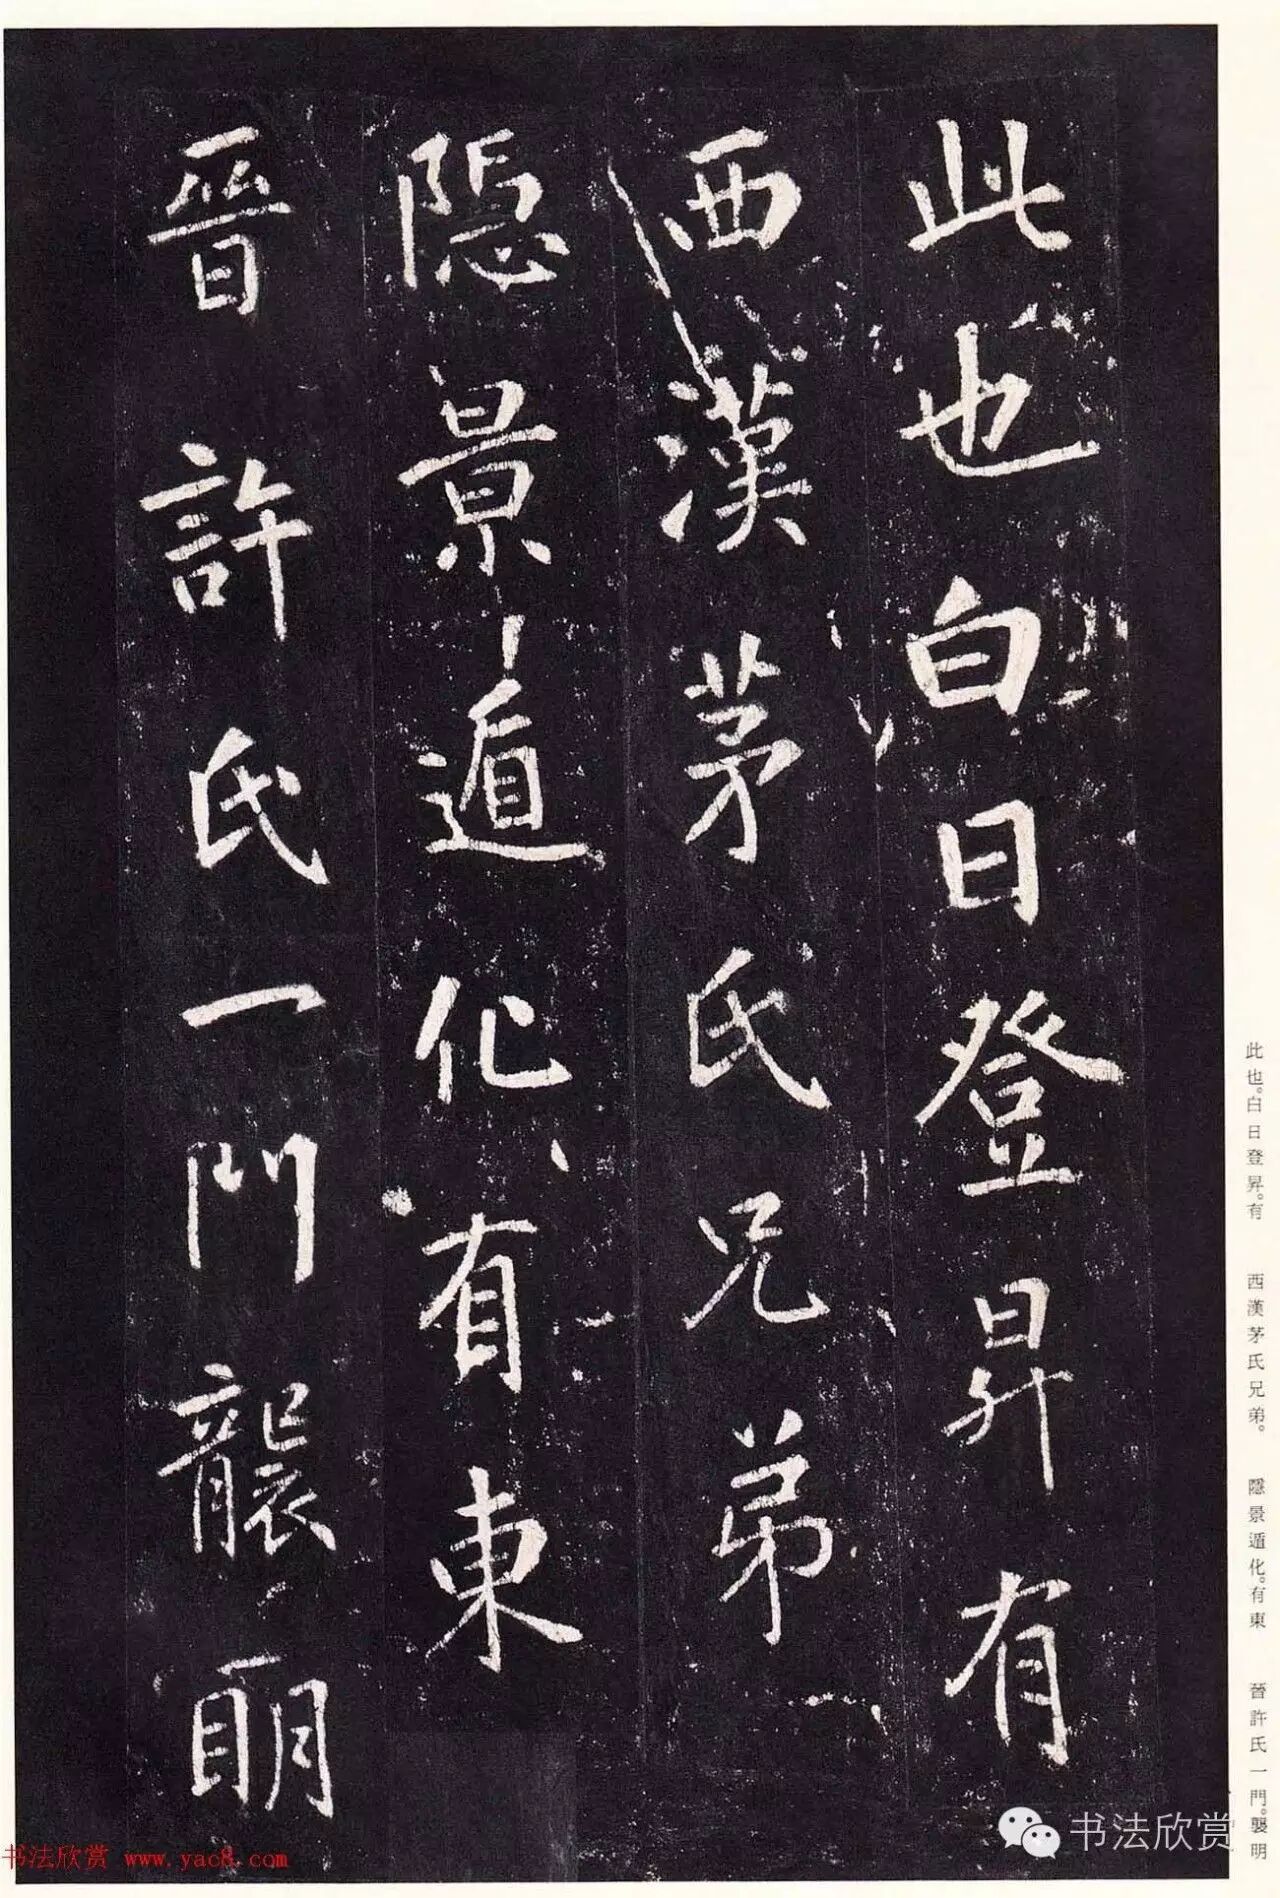 此也白日登昇有
西漢茅氏兄弟
隱景遁化有東
晉許氏一門襲明
此也。白日登昇。有
西漢茅氏兄弟。
隱景遁化。有東
晉許氏一門。襲明
书法欣赏
书法欣赏 www.yac8.com